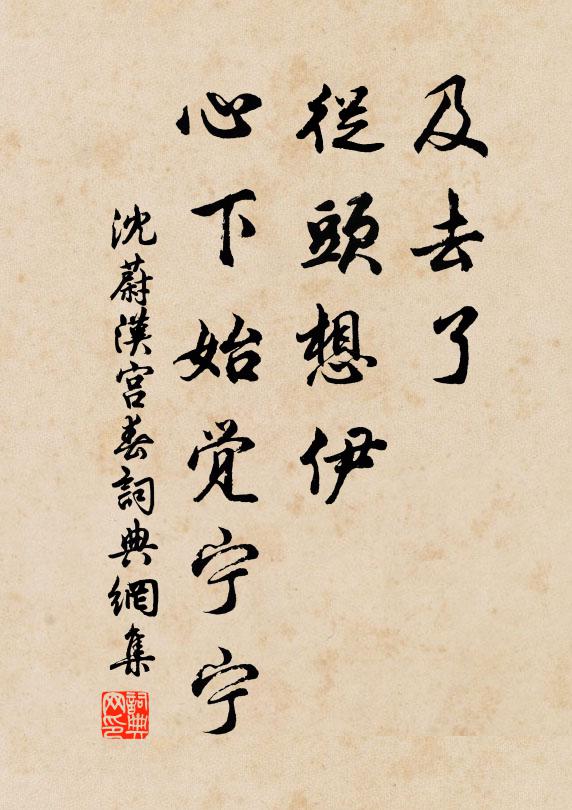 及去了
從頭想伊
心下始觉宁宁
沈蔚漢宮春詞典網集
詞典网印